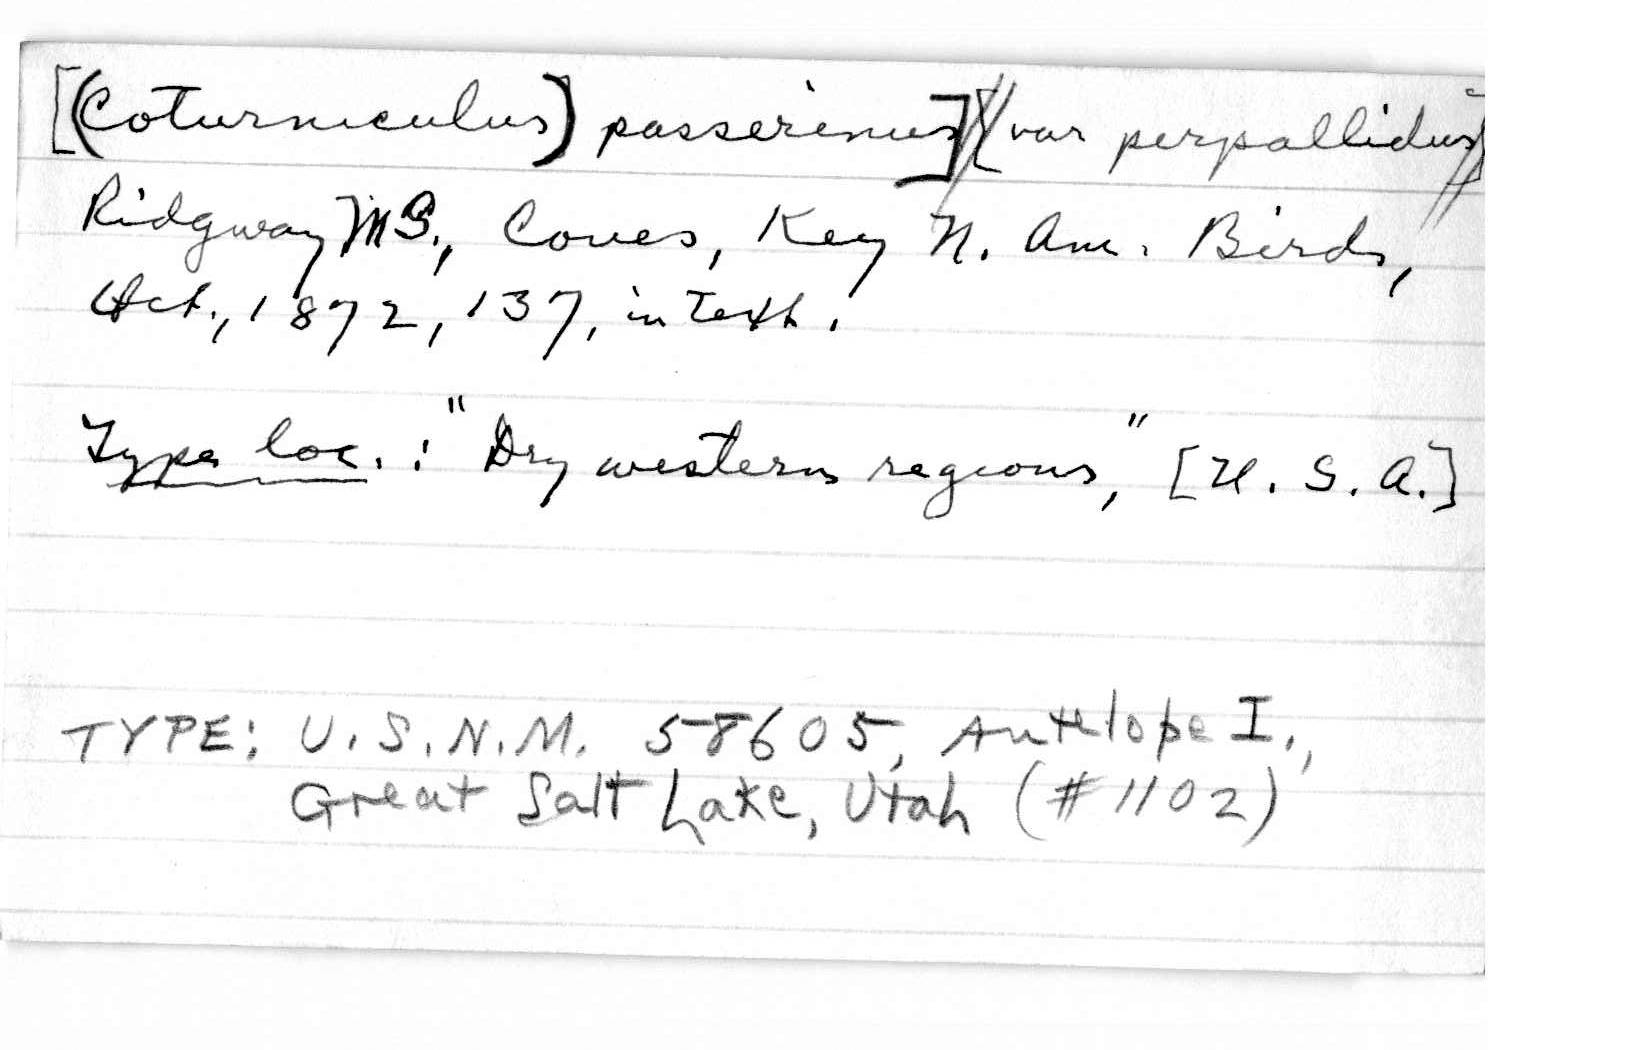 [(Coturniculus) passerinus] (var perpallidus)
Ridgway MS., Coues, Key N. Am. Birds,
Oct., 1872, 137, in text.
Type loc.: "Dry western regions," [U. S. A.]
TYPE: U.S.N.M. 58605, Antelope I.,
Great Salt Lake, Utah (#1102)